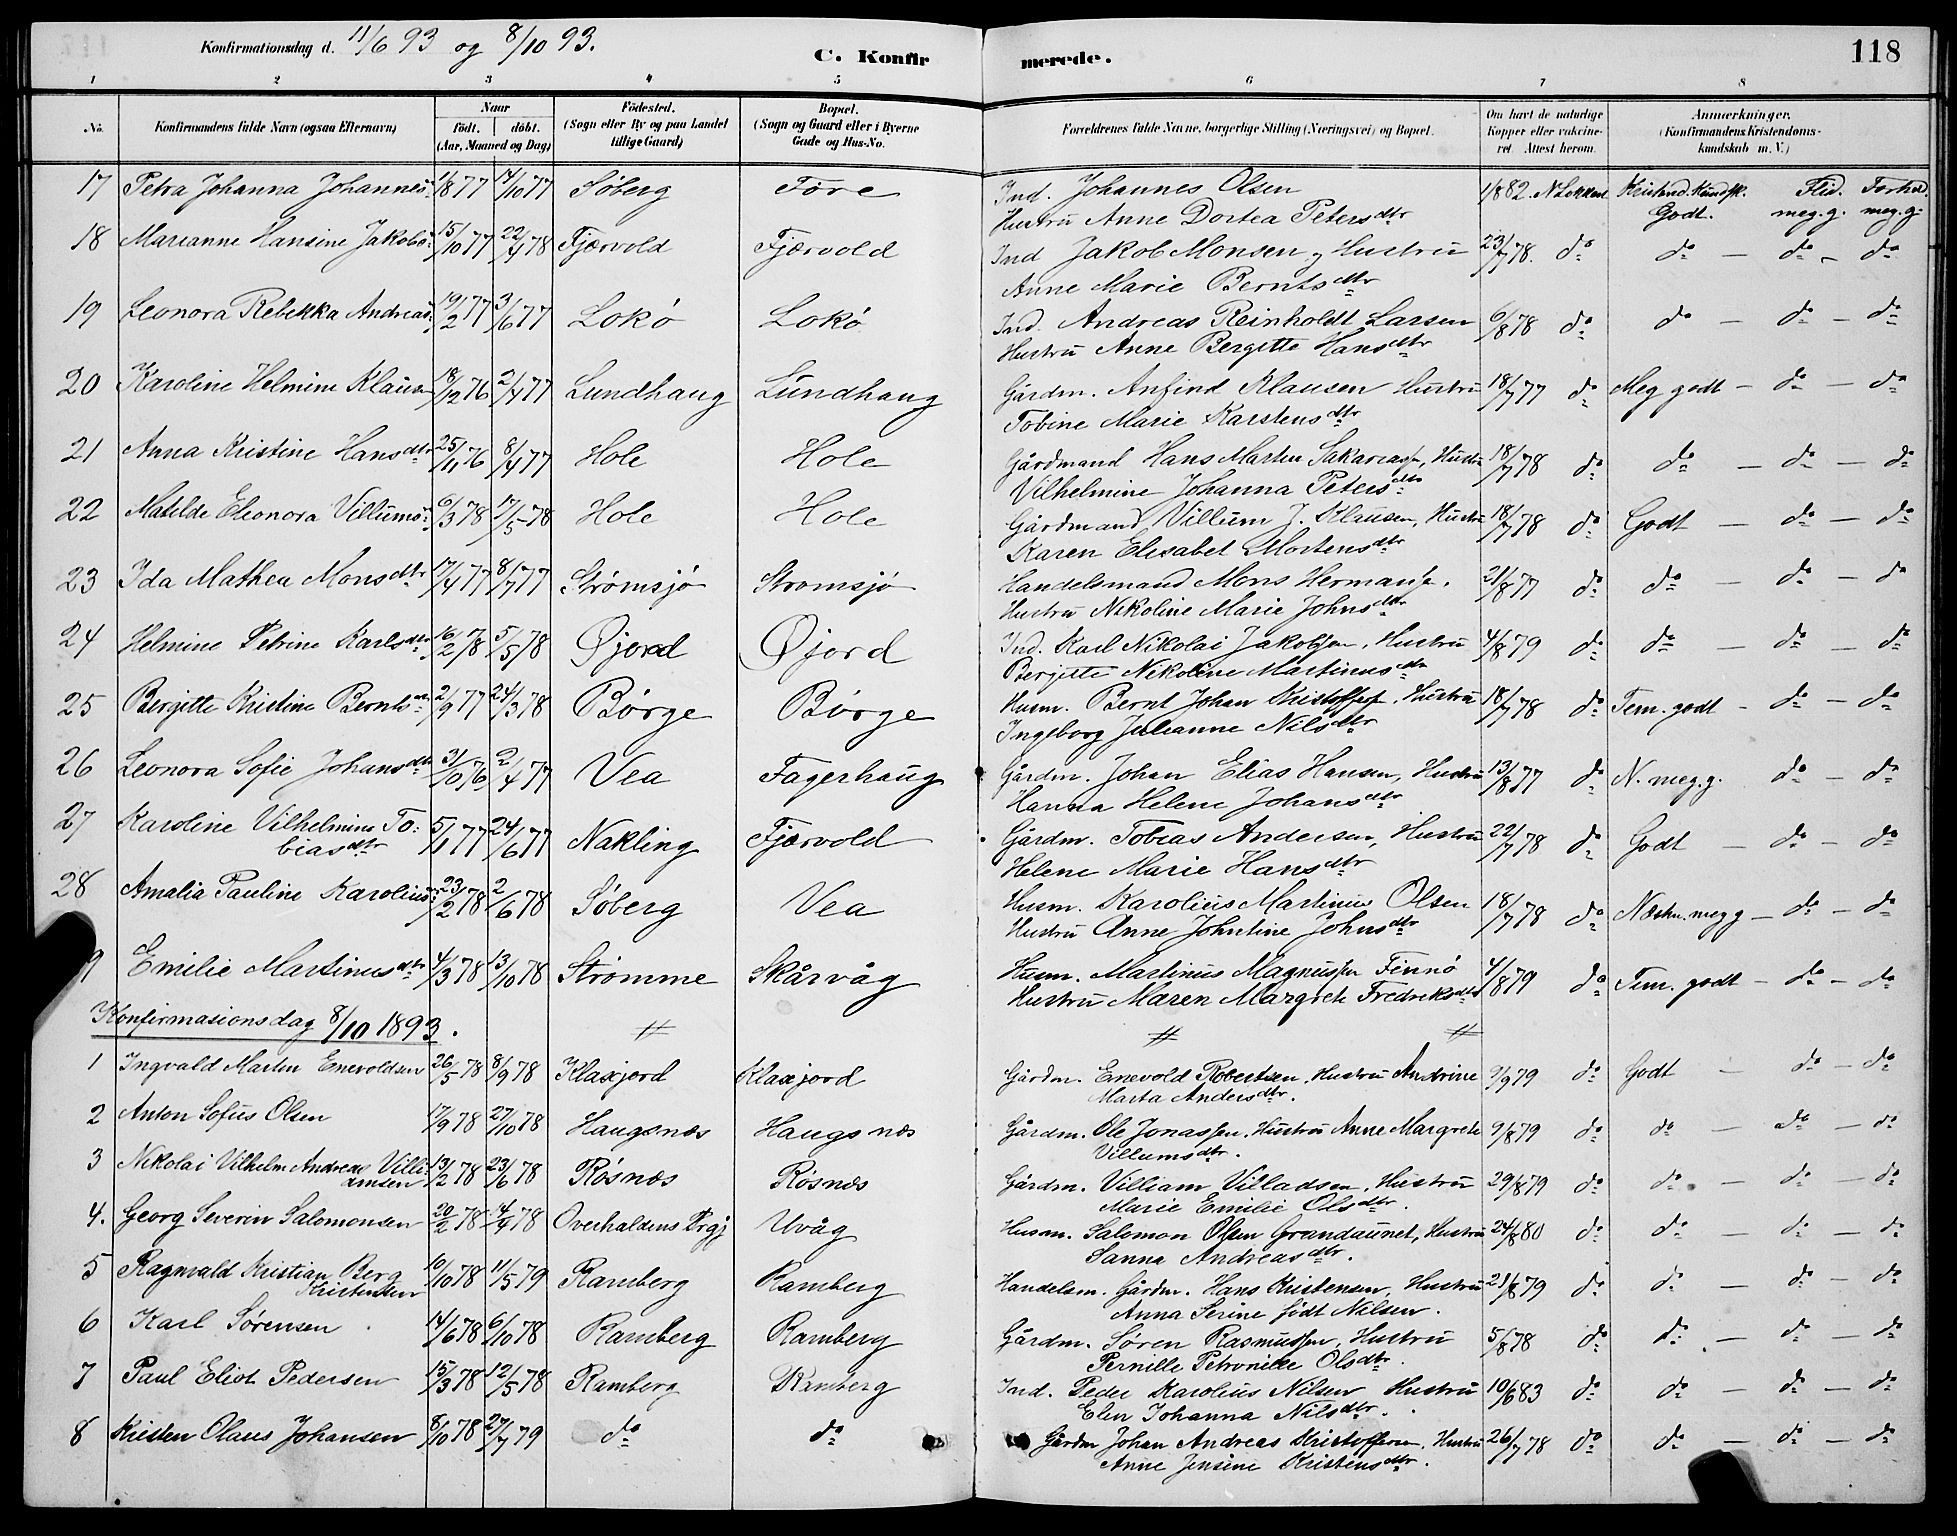 Konfirmationsdag d. 11/6 93 og 8/10 93.
C. Konfirmerede.
118
1 2 3 4 5 6 7 8
No.
Konfirmandens fulde Navn (ogsaa Efternavn)
Naar
født. døbt.
(Aar, Maaned og Dag)
Födested.
(Sogn eller By og paa Landet
tillige Gaard)
Bopæl.
(Sogn og Gaard eller i Byerne
Gade og Hus-No.
Forældrenes fulde Navne, borgerlige Stilling (Næringsvei) og Bopæl.
Om havt de naturlige
Kopper eller vakcine-
ret. Attest herom.
Anmærkninger.
(Konfirmandens Kristendoms-
kundskab m. V.)
17 Petra Johanna Johannes: 1/8 77 14/10 77 Søberg Fore Ind. Johannes Olsen 1/8 82. Kristend. Kundsk. Flid. Forhol.
Hustru Anne Dortea Petersdtr Godt. meg. g. meg. g.
18 Marianne Hansine Jakobs: 15/10 77 22/4 78 Fjærvold Fjærvold Ind Jakob Monsen, Hustru 23/7 78. do do – do – do
Anne Marie Berntsdtr
19 Leonora Rebekka Andreas: 19/2 77 3/6 77 Lokø Lokø Ind. Andreas Reinholdt Larsen 6/8 78 do do – do – do
Hustru Anne Bergitte Hansdtr
20 Karoline Helmine Klaus 18/12 76 2/4 77 Lundhaug Lundhaug Gårdm. Anfind Klausen Hustru 18/7 77 do Meg godt – do – do
Tobine Marie Karstensdtr
21 Anna Kristine Hansdtr 25/11 76 8/4 77 Hole Hole Gårdmand Hans Marten Sakariass, Hustru 18/7 78 do do – do – do
Vilhelmine Johanna Petersdtr
22 Matilde Eleonora Villums: 6/3 78 17/5 78 Hole Hole Gårdmand Villum J. Klausen, Hustru 18/7 78 do Godt – do – do
Karen Elisabet Mortensdtr
23 Ida Mathea Monsdtr 17/4 77 8/7 77 Strømsjø Strømsjø Handelsmand Mons Hermans. 21/8 77 do do – do – do
Hustru Nikoline Marie Johnsdtr
24 Helmine Petrine Karlsdtr 16/2 78 5/5 78 Øjord Øjord Ind. Karl Nikolai Jakobsen, Hustru 4/8 79 do do – do – do
Bergitte Nikoline Martinusdtr
25 Bergitte Kristine Berntsdtr 2/9 77 24/3 78 Børge Børge Husm. Bernt Johan Kristoffers, Hustru 18/7 78 do Tem. godt – do – do
Ingeborg Julianne Nilsdtr
26 Leonora Sofie Johansdtr 31/10 76 2/4 77 Vea Fagerhaug Gårdm. Johan Elias Hansen, Hustru 13/8 77 do N. meg. g. do – do
Hanna Helene Johansdtr
27 Karoline Vilhelmine To: 5/1 77 24/6 77 Nakling Fjærvold Gårdm. Tobias Andersen, Hustru 22/7 78 do Godt – do – do
biasdtr Helene Marie Hansdtr
28 Amalia Pauline Karolius: 23/2 78 2/6 78 Søberg Vea Husm. Karolius Martinus Olsen 18/7 78 do Næstn. meg g – do – do
Hustru Anne Johntine Johnsdtr
9 Emilie Martinusdtr 4/3 78 13/10 78 Strømme Skårvåg Husm. Martinus Magnussen Finnø 4/8 79 do Tem. godt – do – do
Hustru Maren Margrete Fredriksdtr
Konfirmasionsdag 8/10 1893.
1 Ingvald Marten Enevoldsen 26/5 78 8/9 78 Klaxjord Klaxjord Gårdm. Enevold Robertsen, Hustru Andrine 9/9 79 do Godt – do – do
Marta Andersdtr.
2 Anton Sofus Olsen 17/9 78 27/10 78 Haugsnæs Haugsnæs Gårdm. Ole Jonassen, Hustru Anne Margrete 9/8 79 do do – do – do
Villumsdtr.
3 Nikolai Vilhelm Andreas Villi- 13/2 78 23/6 78 Røsnæs Røsnæs Gårdm. Villiam Villadsen, Hustru 29/8 79 do do – do – do
amsen Marie Emilie Olsdtr.
4. Georg Severin Salomonsen 20/2 78 14/4 78 Overhaldens Prgj Uvåg Husm. Salomon Olsen Grandaunet, Hustru 24/8 80 do do – do – do
Sanna Andreasdtr.
5 Ragnvald Kristian Berg 10/10 78 11/5 79 Ramberg Ramberg Handelsm. Gårdm. Hans Kristensen, Hustru 21/8 79 do do – do – do
Kristensen Anna Serine født Nilsen.
6 Karl Sørensen 14/6 78 6/10 78 Ramberg Ramberg Gårdm. Søren Rasmussen, Hustru 5/8 78 do do – do – do
Pernille Petronille Olsdtr.
7 Paul Eliot Pedersen 15/3 78 12/5 78 Ramberg Ramberg Ind. Peder Karolius Nilsen Hustru 10/6 83 do do – do – do
Elen Johanna Nilsdtr.
8 Kristen Olaus Johansen 8/10 78 27/7 79 do do Gårdm Johan Andreas Kristoffersen, Hustru 26/7 78 do do – do – do
Anne Jensine Kristensdtr.